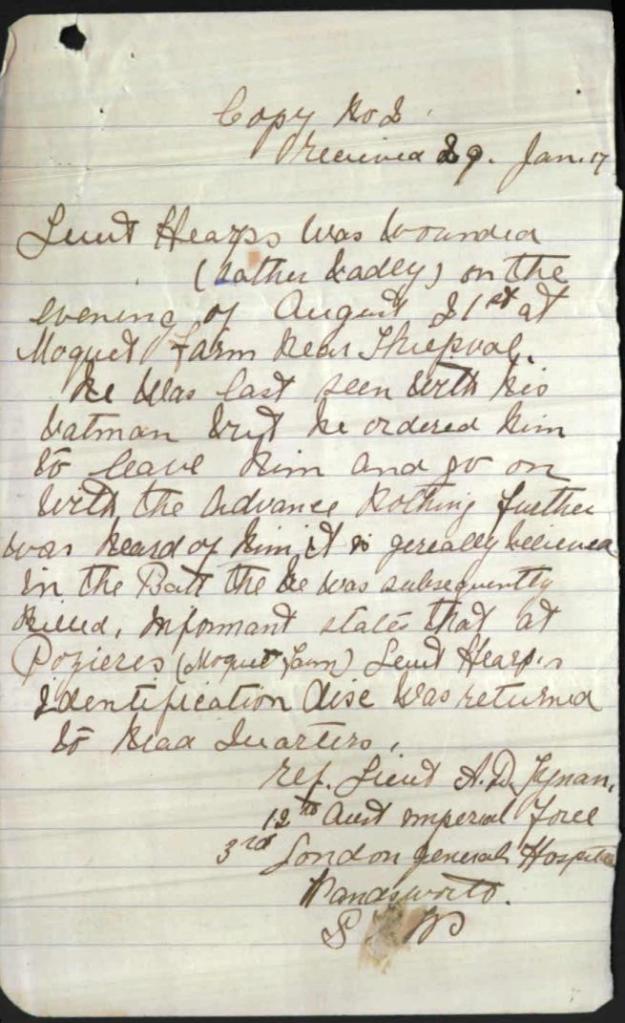 Copy No 2.
received 29. Jan. 17
Lieut Hearps was wounded
(rather badly) on the
evening of August 21st at
Moquet Farm near Thiepval.
He was last seen with his
batman but he ordered him
to leave him and go on
with the advance nothing further
was heard of him, it is gereally believed
in the Batt the he was subsequently
killed, Informant states that at
Pozieres (Moquet Farm) Lieut Hearps
identification disc was returned
to Head Quarters.
ref. Lieut A. D. Tynan,
12th Aust imperial Force
3rd London general Hospital
Wandsworth.
S W